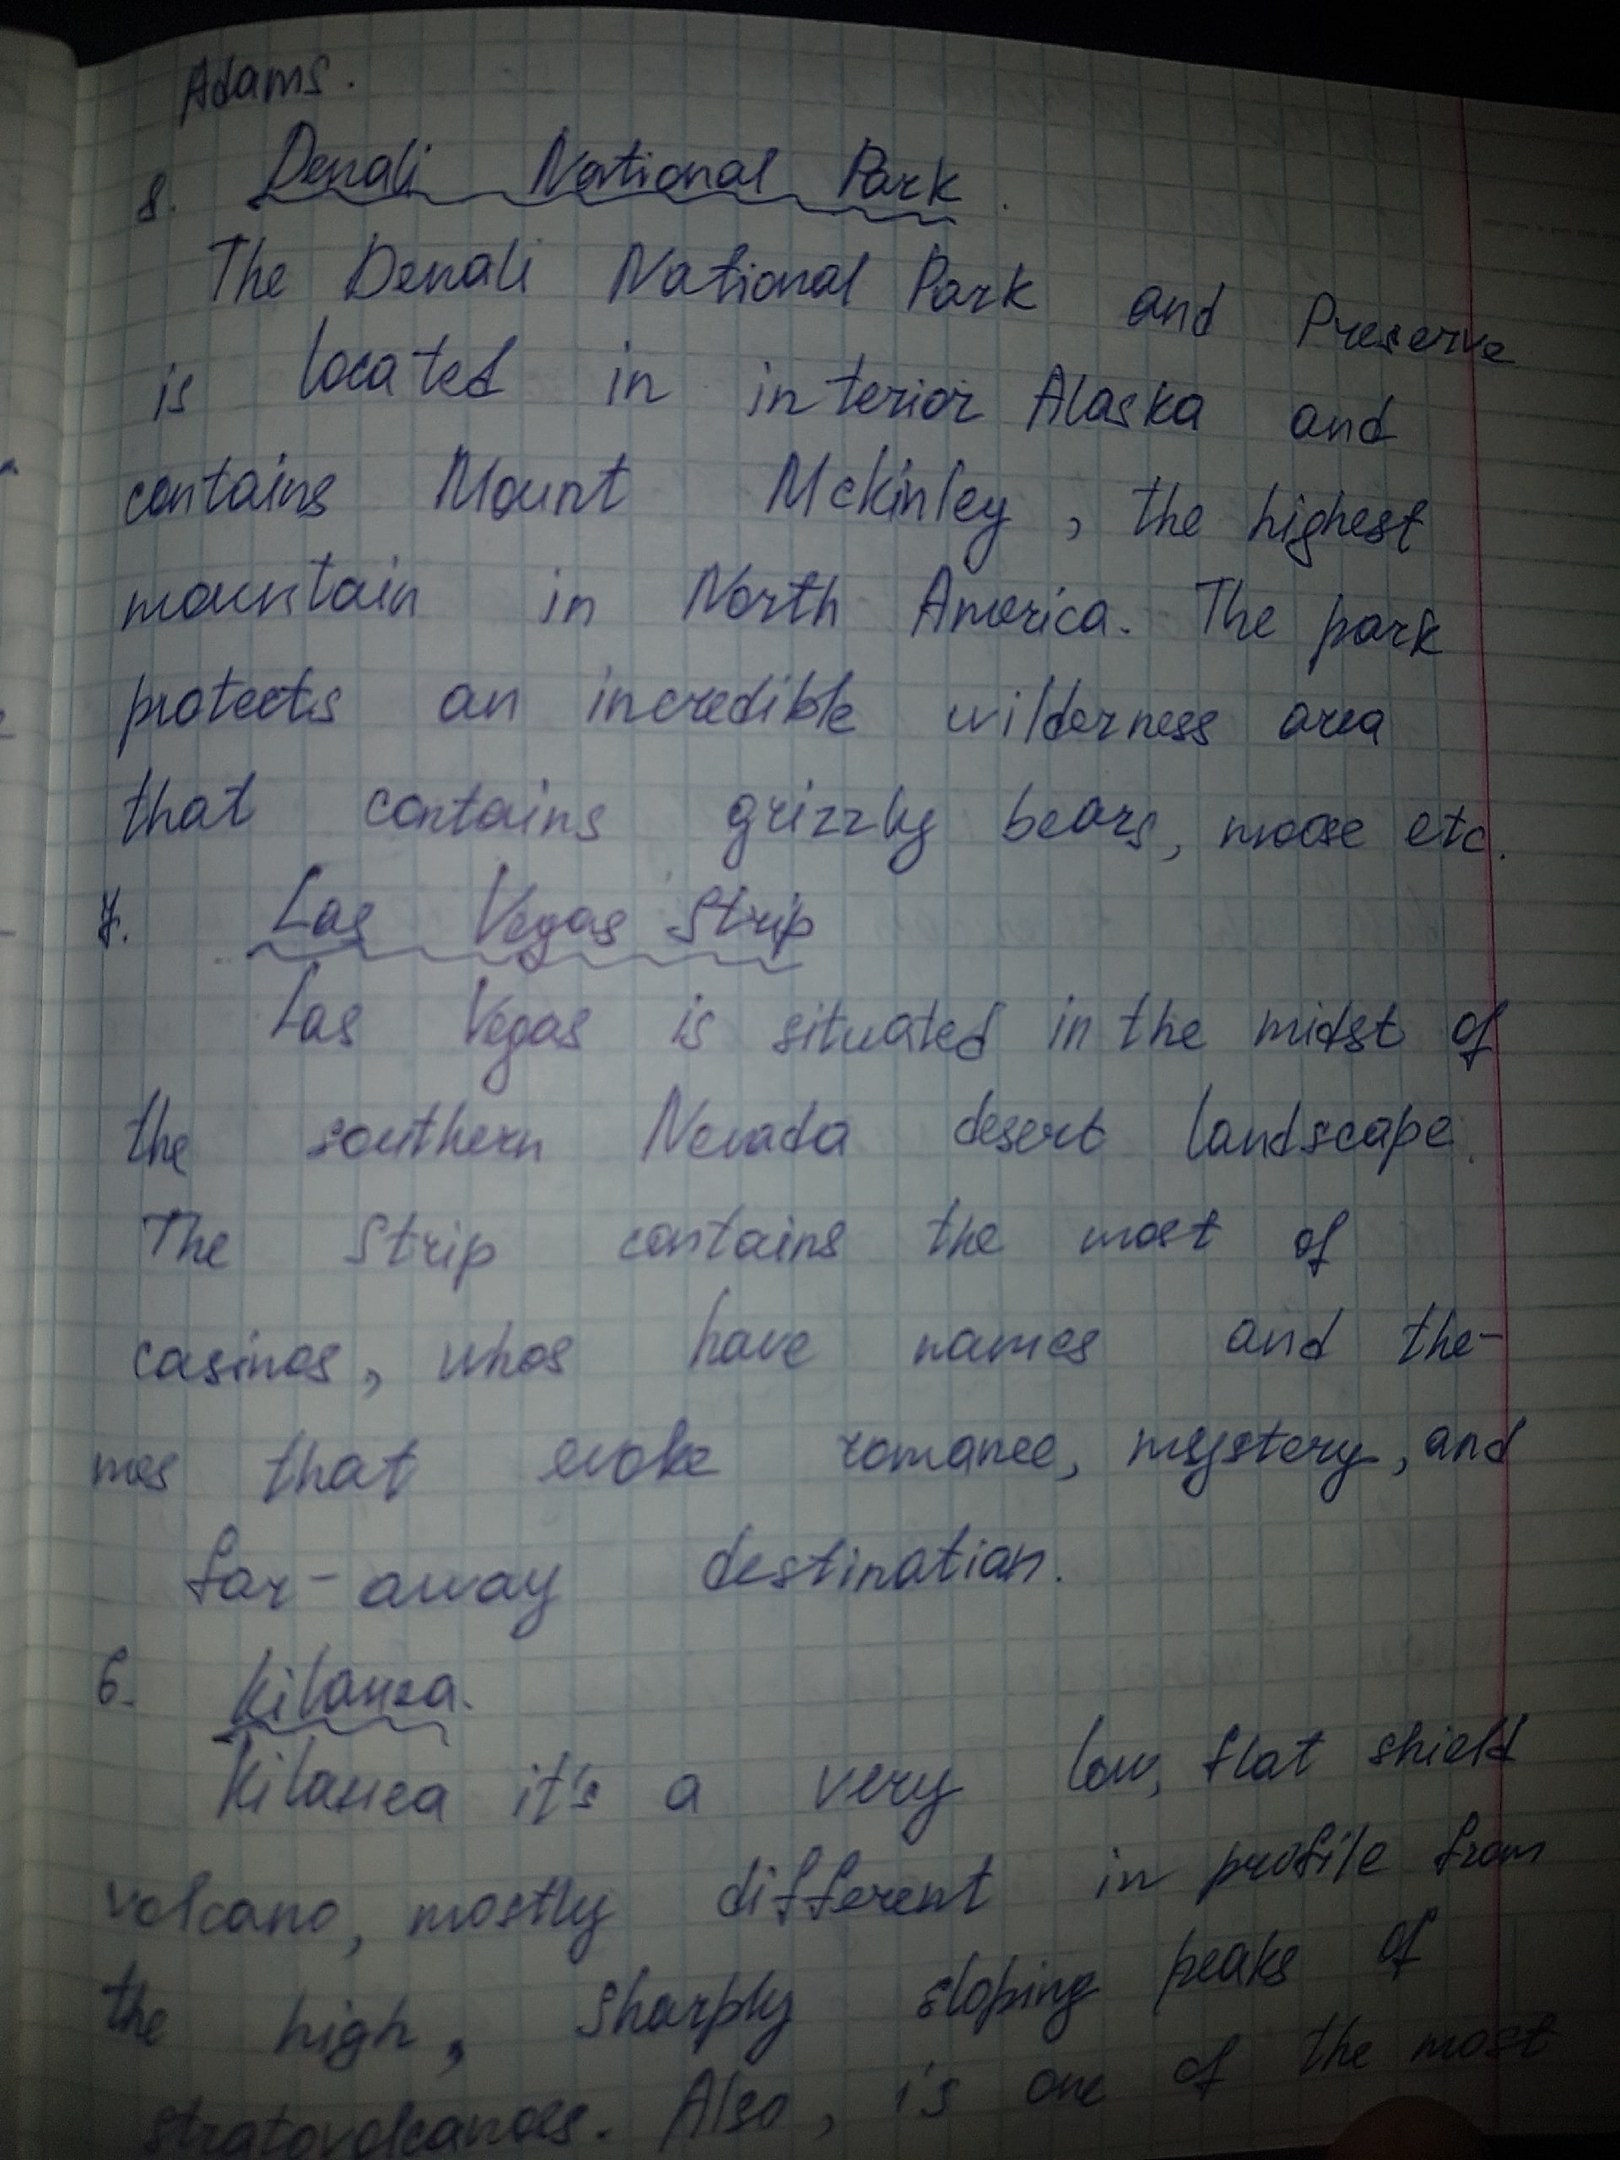 Adams.
8. Denali National Park.
The Denali National Park and Preserve
is located in interior Alaska and
contains Mount Mckinley, the highest
mountain in North America. The park
protects an incredible wilderness area
that contains grizzly bears, moose etc.
7. Las Vegas Strip
Las Vegas is situated in the midst of
the southern Nevada desert landscape.
The Strip contains the most of
casinos, whos have names and the-
mes that evoke romance, mystery, and
far-away destination.
6. Kilauea.
Kilauea it's a very low, flat shield
volcano, mostly different in profile from
the high, sharply sloping peaks of
stratovolcanoes. Also, is one of the most